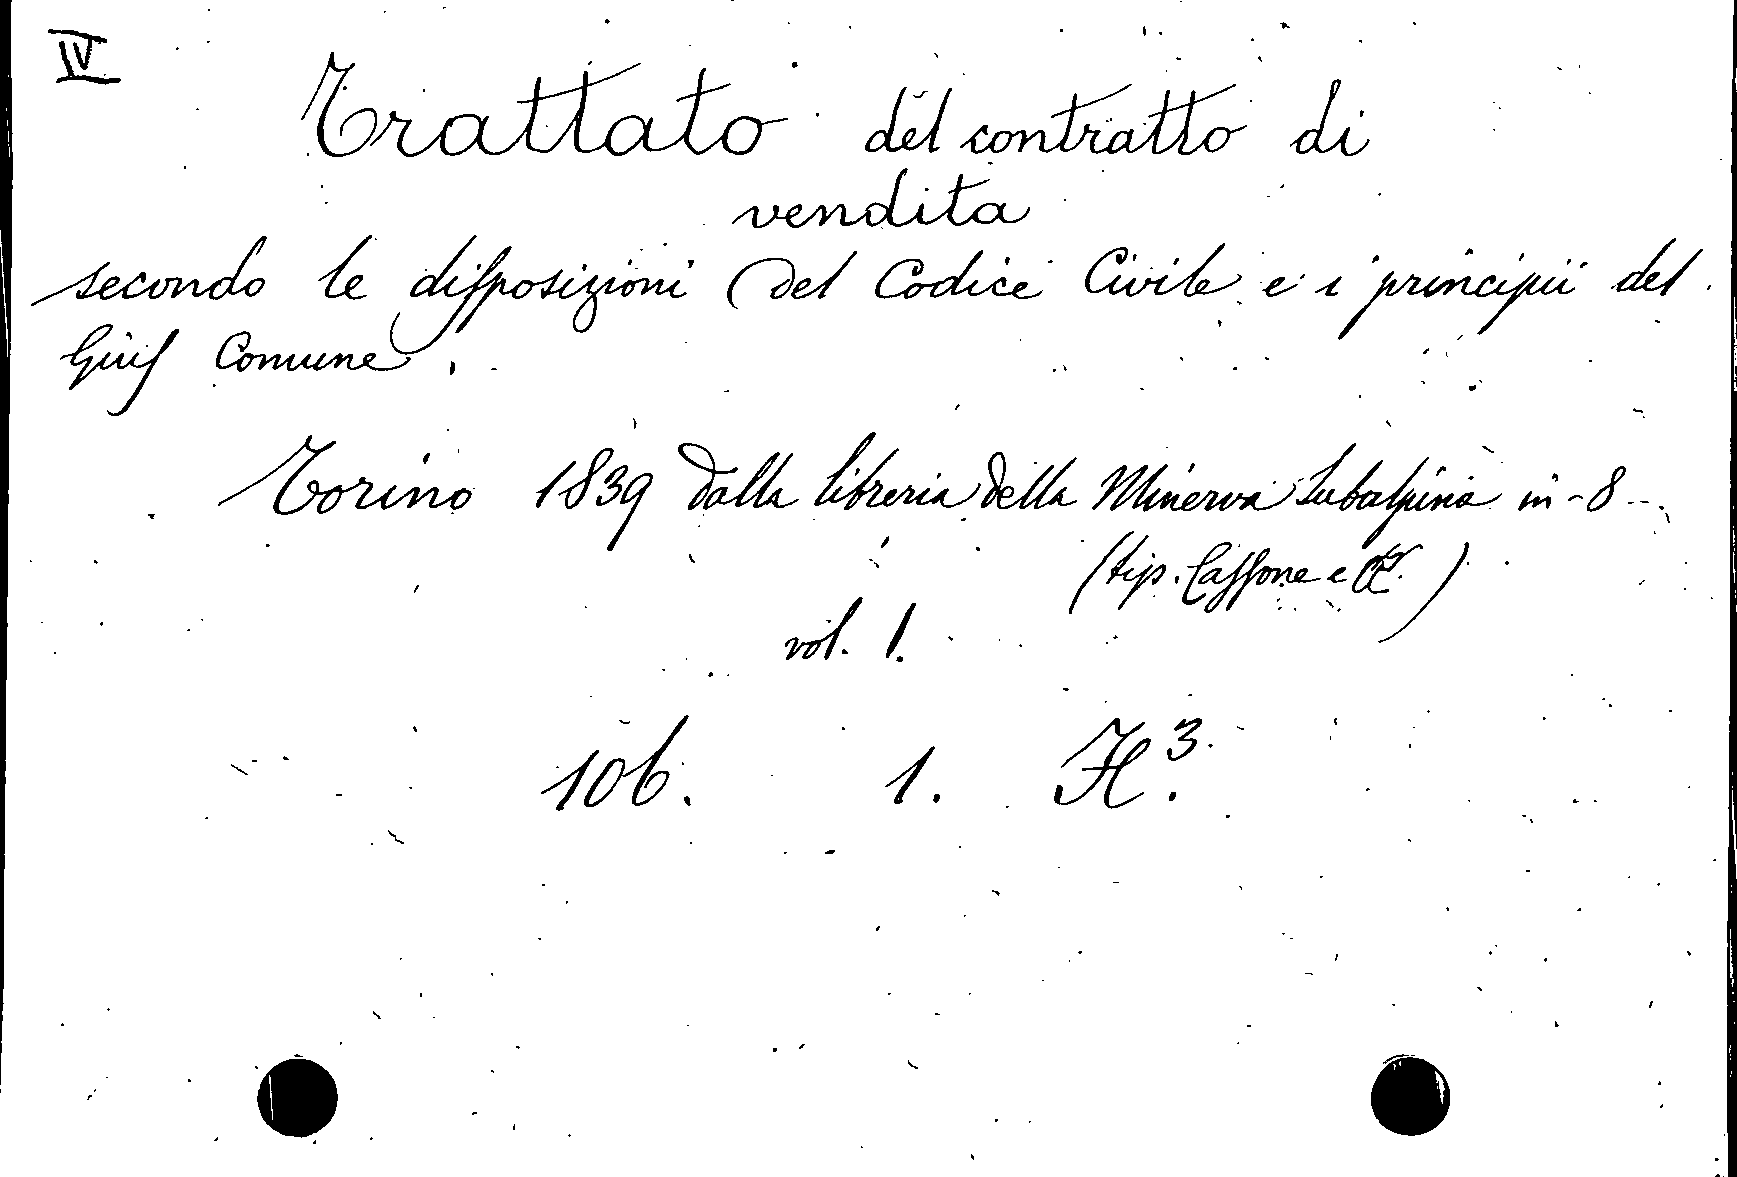 IV
Trattato del contratto di
vendita
secondo le disposizioni del Codice Civile e i principii del
Gius Comune.
Torino 1839 dalla libreria della Minerva Subalpina in-8
(tip. Cassone e C.)
vol. 1.
106. 1. H³.